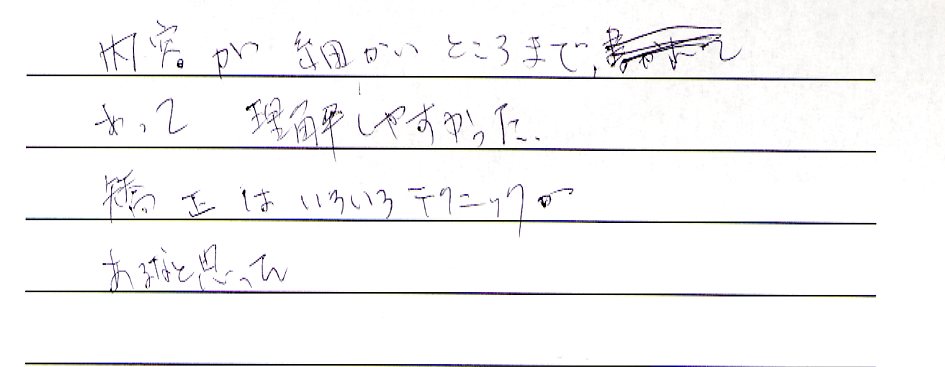 内容が細かいところまで、
あって 理解しやすかった。
矯正はいろいろテクニックが
あるなと思った